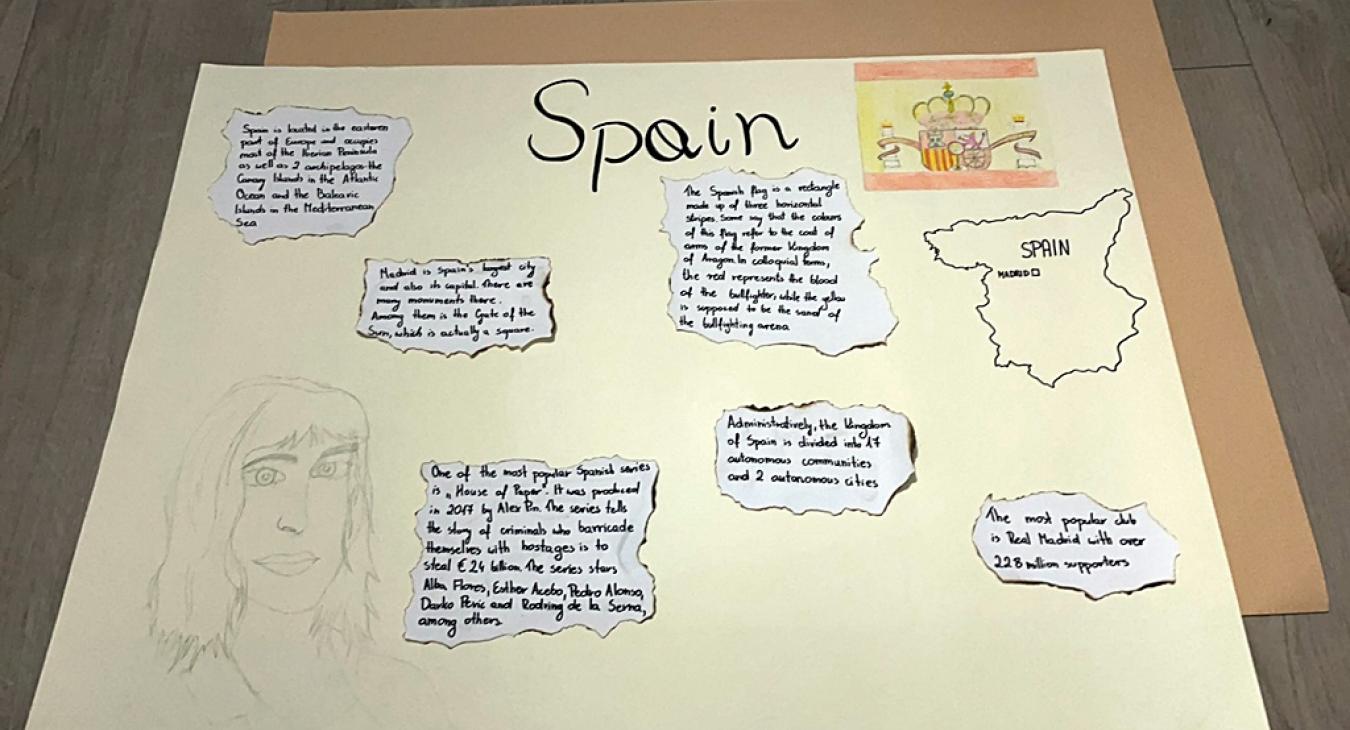 Spain
Spain is located in the eastern
part of Europe and occupies
most of the Iberian Peninsula
as well as 2 archipelagos the
Canary Islands in the Atlantic
Ocean and the Balearic
Islands in the Mediterranean
Sea
Madrid is Spain's largest city
and also its capital. There are
many monuments there.
Among them is the Gate of the
Sun, which is actually a square.
The Spanish flag is a rectangle
made up of three horizontal
stripes. Some say that the colours
of this flag refer to the coat of
arms of the former Kingdom
of Aragon. In colloquial terms,
the red represents the blood
of the bullfighter, while the yellow
is supposed to be the sand of
the bullfighting arena
SPAIN
MADRID
One of the most popular Spanish series
is „House of Paper". It was produced
in 2017 by Alex Pin. The series tells
the story of criminals who barricade
themselves with hostages is to
steal € 24 billion. The series stars
Alba Flores, Esther Acebo, Pedro Alonso,
Darko Peric and Rodring de la Serna,
among others
Administratively, the Kingdom
of Spain is divided into 17
autonomous communities
and 2 autonomous cities
The most popular club
is Real Madrid with over
228 million supporters